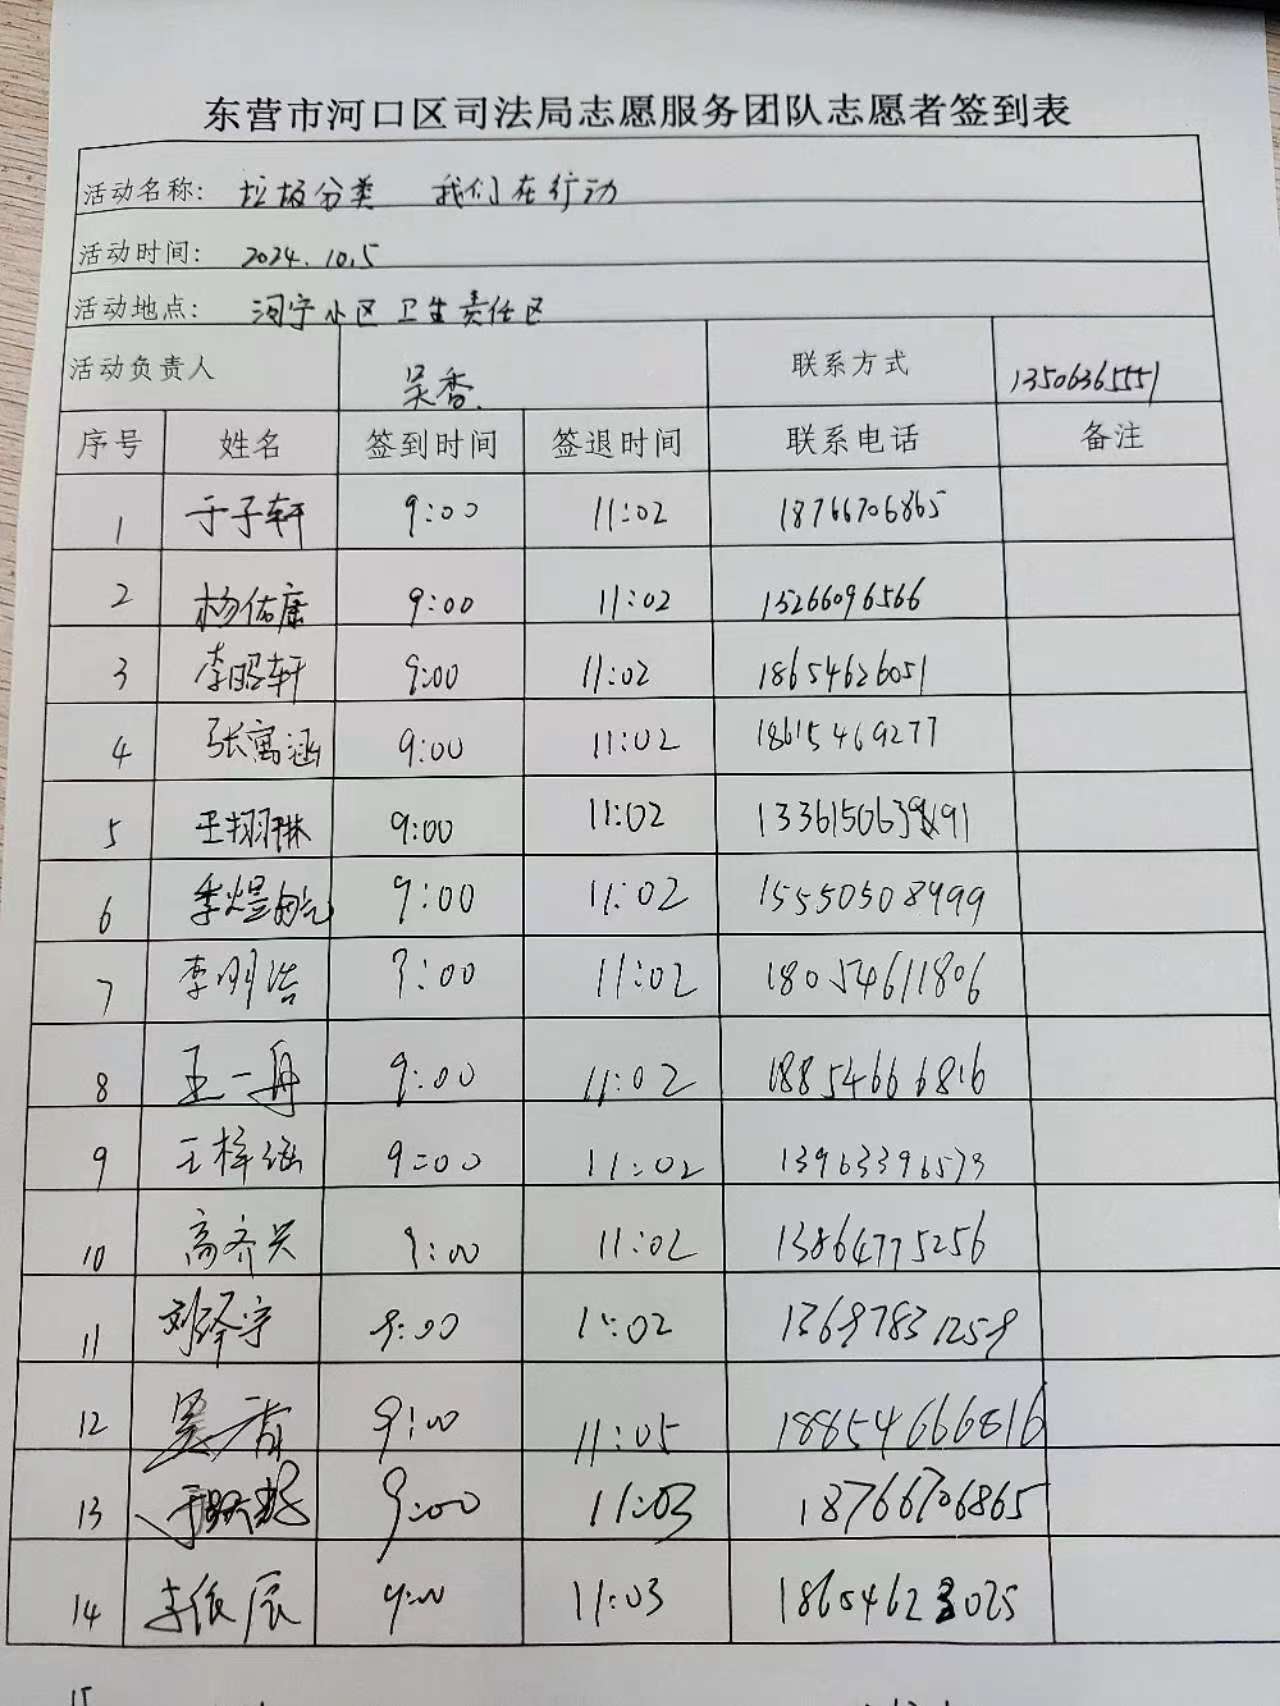 东营市河口区司法局志愿服务团队志愿者签到表
活动名称: 垃圾分类 我们在行动
活动时间: 2024.10.5
活动地点: 河宁小区卫生责任区
活动负责人 吴香 联系方式 13506365551
序号 姓名 签到时间 签退时间 联系电话 备注
1 于子轩 9:00 11:02 18766706865
2 杨佑康 9:00 11:02 15266096566
3 李昭轩 9:00 11:02 18654626051
4 张寓涵 9:00 11:02 18615469277
5 王翊琳 9:00 11:02
6 季煜航 9:00 11:02 15550508999
7 李明浩 9:00 11:02 18054611806
8 王一舟 9:00 11:02 18854666816
9 王梓涵 9:00 11:02 13963396573
10 高齐兴 9:00 11:02 13864775256
11 刘泽宇 9:00 11:02 13697831259
12 吴香 9:00 11:05 18854666816
13 9:00 11:03 18766706865
14 李依辰 9:00 11:03 18654623025
15